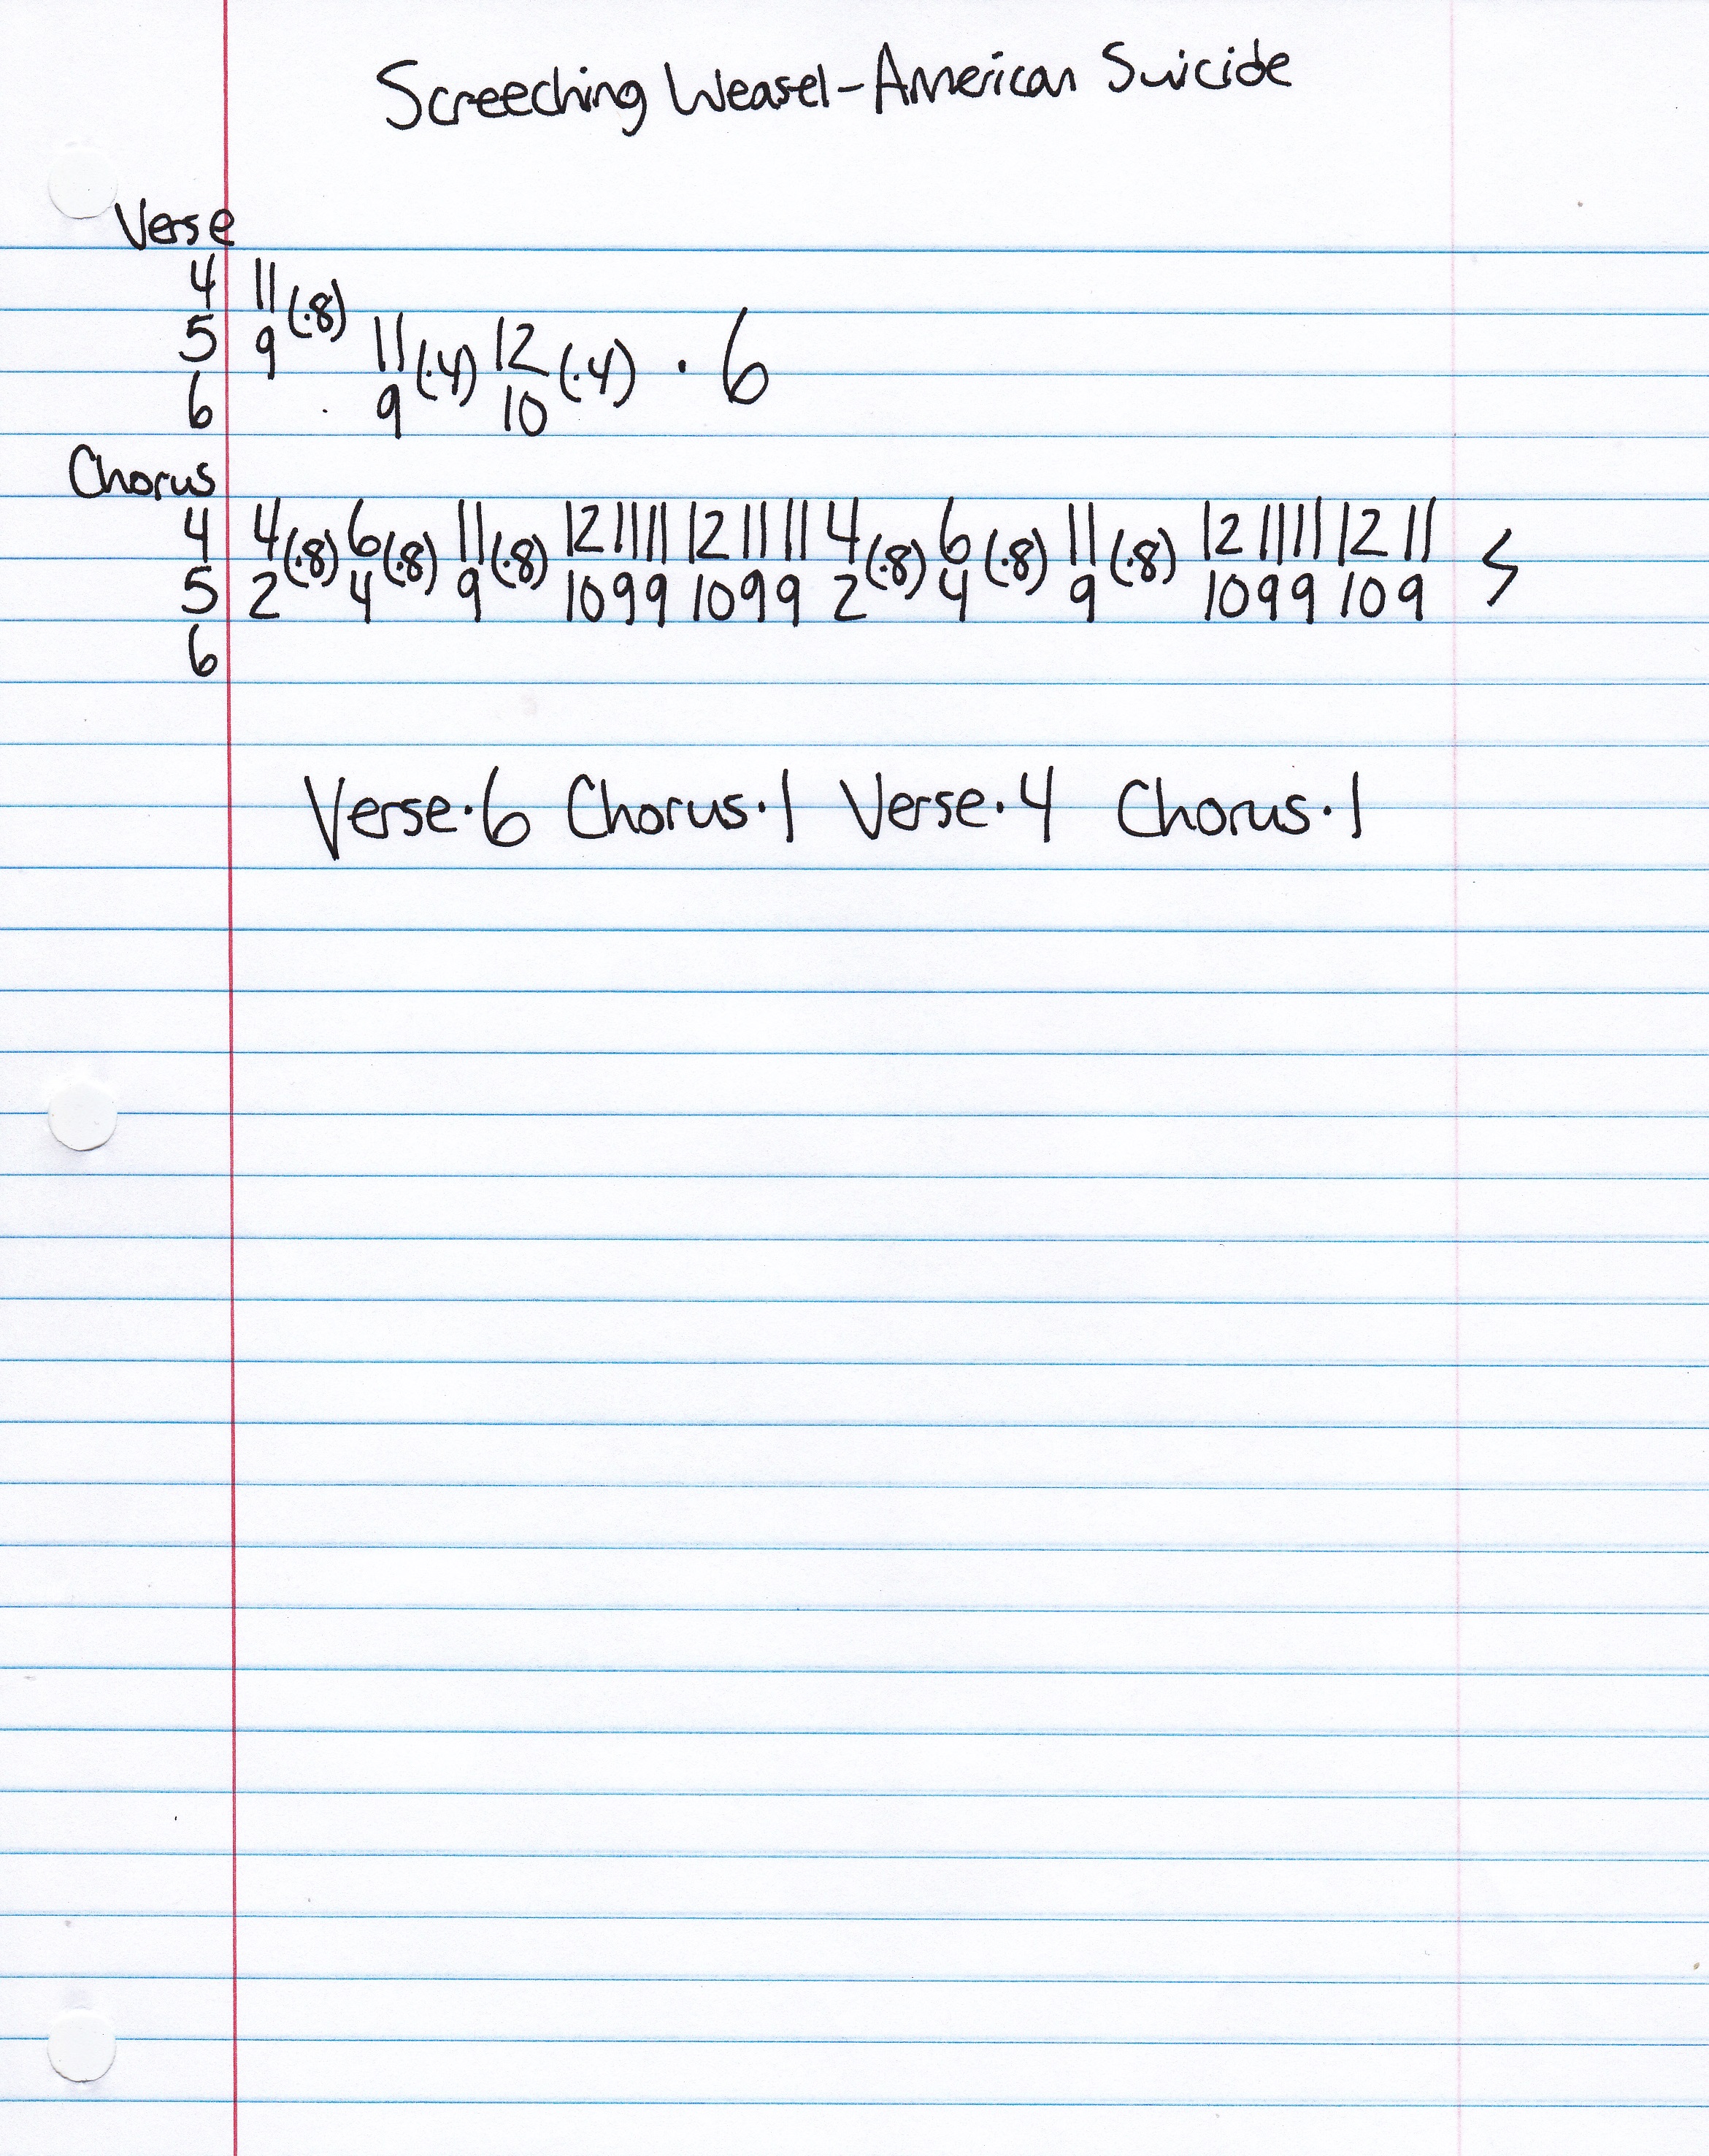 Screeching Weasel-American Suicide
Verse
4 11 (·8)
5 9 11 (·4) 12 (·4) · 6
6 9 10
Chorus
4 4 (·8) 6 (·8) 11 (·8) 12 11 11 12 11 11 4 (·8) 6 (·8) 11 (·8) 12 11 11 12 11
5 2 4 9 10 9 9 10 9 9 2 4 9 10 9 9 10 9
6
Verse·6 Chorus·1 Verse·4 Chorus·1